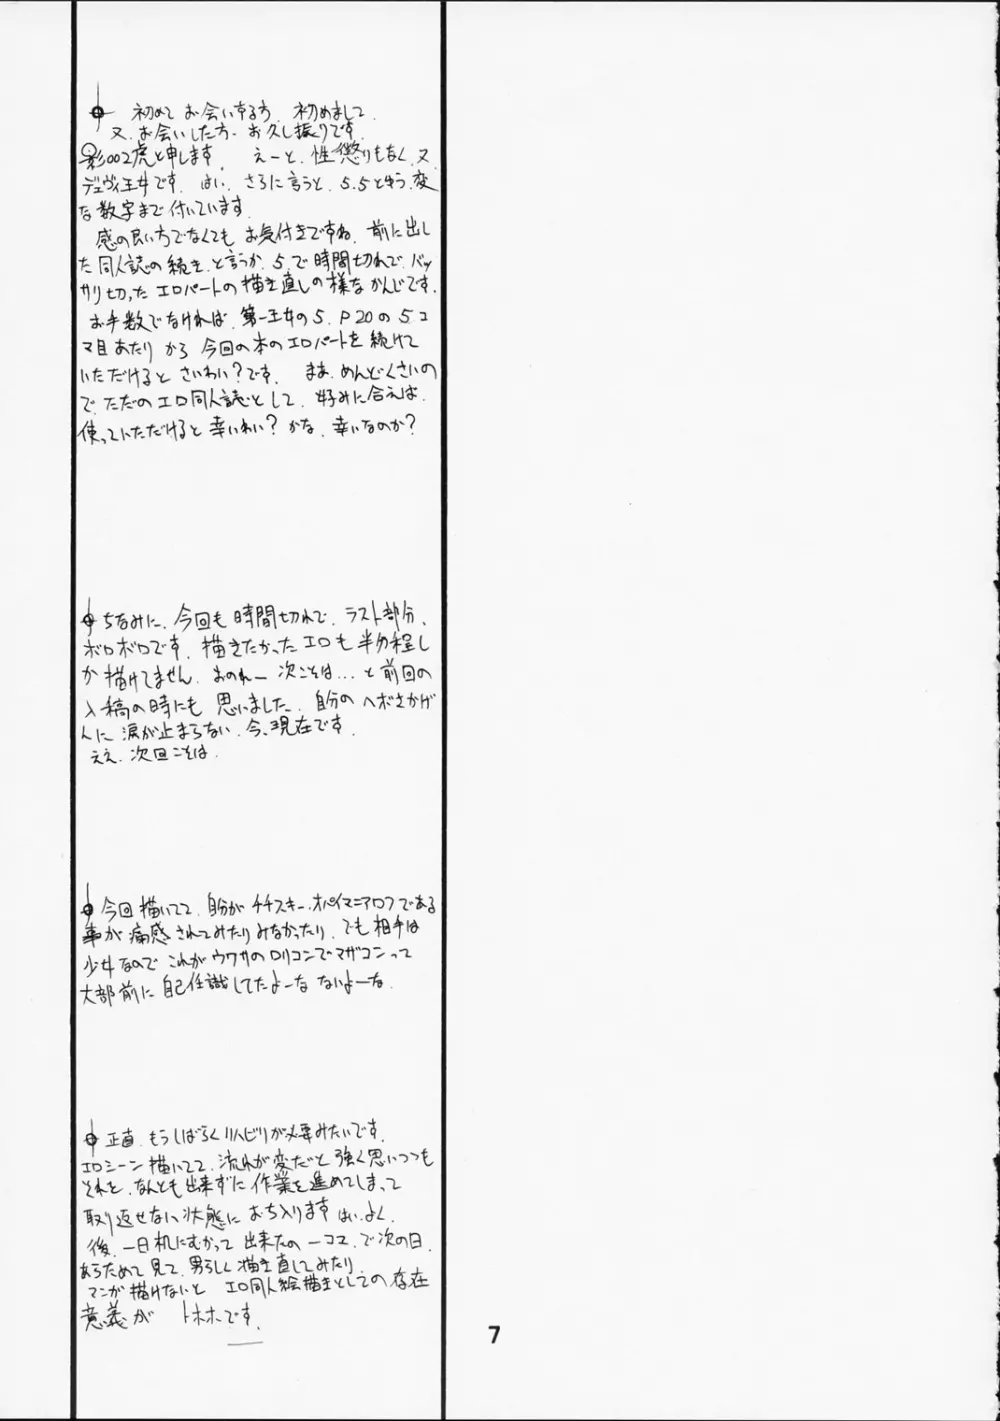 初めて お会いする方、初めまして、
又、お会いした方、お久し振りです。
影002虎と申します。 えーと、性懲りもなく、又、
デュヴィ王女です。 はい、さらに言うと、5.5と言う変
な数字まで付いています。
感の良い方でなくても お気付きですね、前に出し
た同人誌の続き、と言うか、5.で時間切れで、バッ
サリ切った エロパートの描き直しの様な かんじです。
お手数でなければ、第一王女の5. P20の5コ
マ目あたり から 今回の本のエロパートを続けて
いただけると さいわい?です。 まぁ、めんどくさいの
で、ただの エロ同人誌として、好みに合えば、
使っていただけると 幸いわい? かな、幸いなのか?
ちなみに、今回も時間切れで、ラスト部分、
ボロボロです。描きたかった エロも 半分程し
か 描けてません。おのれー 次こそは…と 前回の
入稿の時にも 思いました。自分の ヘボさかげ
んに 涙が止まらない、今、現在です。
ええ、次回こそは。
今回 描いてて、自分が チチスキー、オパイマニアロフである
事が 痛感されてみたり みなかったり、でも 相手は
少女なので これが ウワサの ロリコンでマザコンって
大部前に 自己任識してたよーな ないよーな。
正直、もうしばらくリハビリが必要みたいです。
エロシーン描いてて、流れが変だと 強く思いつつも
それを、なんとも出来ずに 作業を進めてしまって
取り返せない状態に おち入ります はい、よく、
後、一日机にむかって 出来たの 一コマ、で次の日、
あらためて見て、男らしく描き直してみたり、
マンが描けないと エロ同人絵描きとしての存在
意義が トホホです。
7